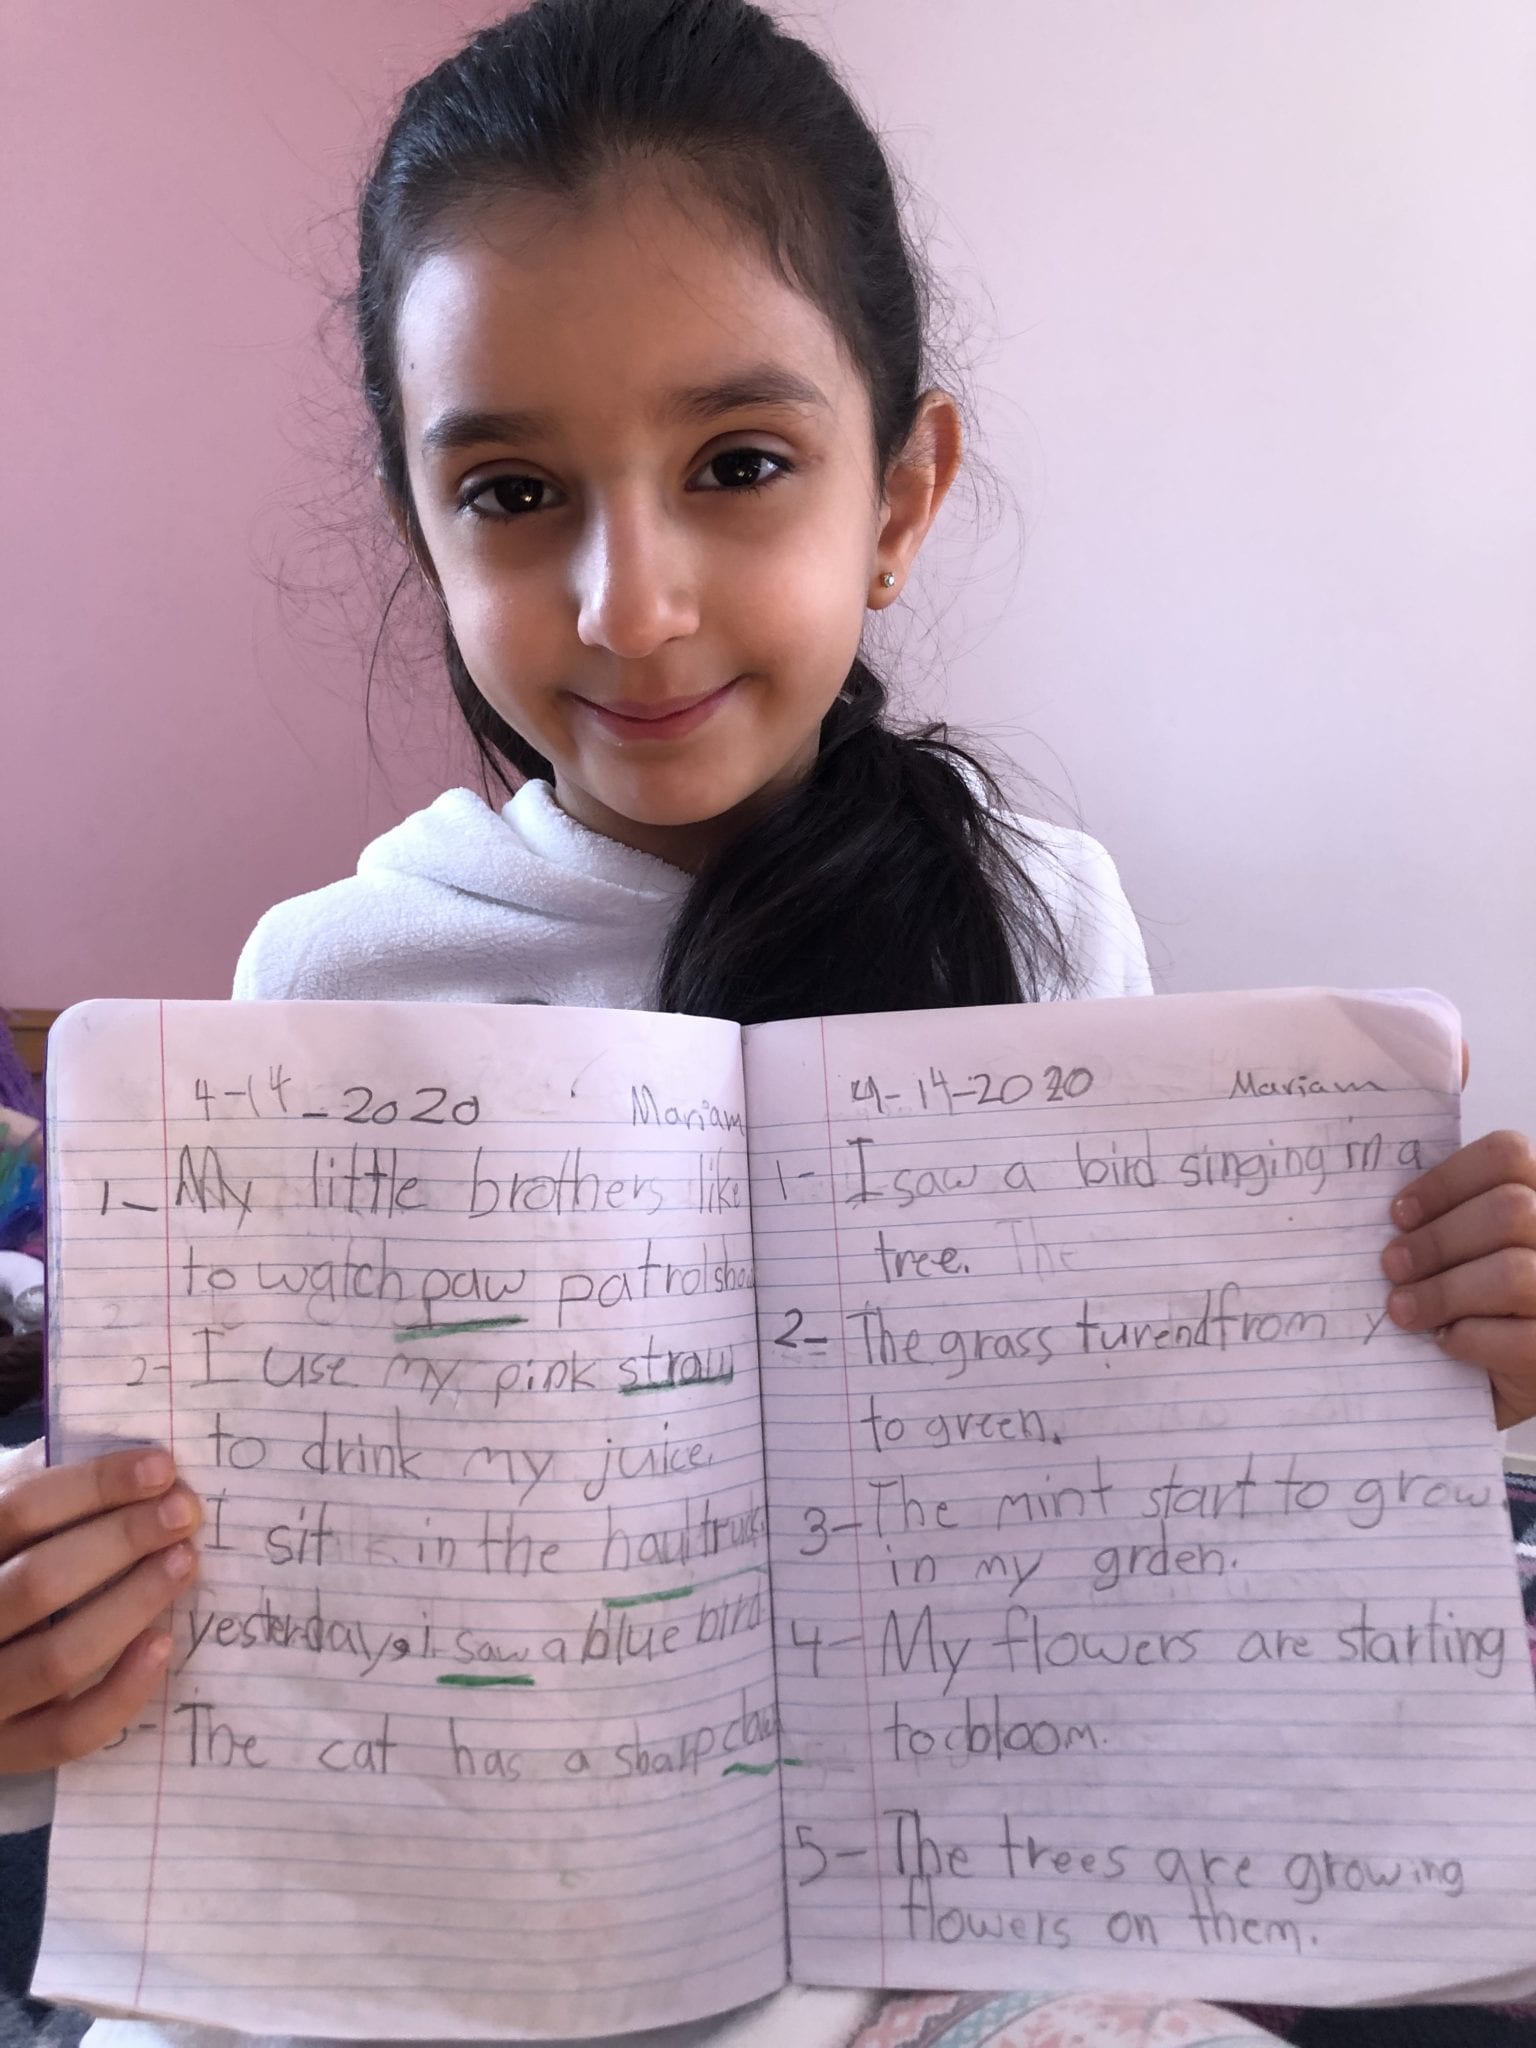 4-14-2020 Mariam
1- My little brothers like
to watch paw patrol
2- I use my pink straw
to drink my juice.
I sit in the haul truck.
yesterday, i saw a blue bird
The cat has a sharp claw
4-14-2020 Mariam
1- I saw a bird singing in a
tree. The
2- The grass turend from y
to green.
3- The mint start to grow
in my grden.
4- My flowers are starting
to bloom.
5- The trees are growing
flowers on them.